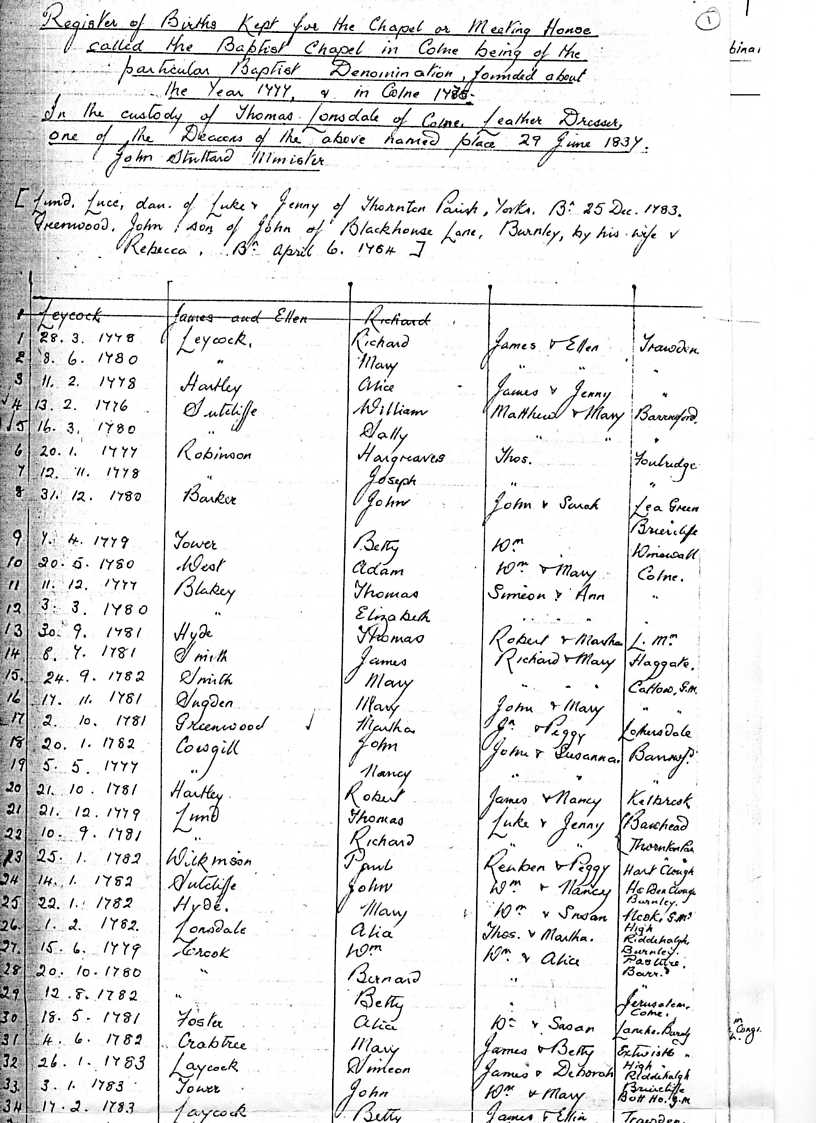 Register of Births Kept for the Chapel or Meeting House
called the Baptist Chapel in Colne being of the
particular Baptist Denomination, founded about
the Year 1777, & in Colne
In the custody of Thomas Lonsdale of Colne, Leather Dresser,
one of the Deacons of the above named place 29 June 1837.
John Stuttard Minister
1
binar
[ Lund, Luce, dau. of Luke & Jenny of Thornton Parish, Yorks. Bn 25 Dec. 1783.
Greenwood, John, son of John of Blackhouse Lane, Burnley, by his wife &
Rebecca, Bn April 6. 1784 ]
Leycock James and Ellen Richard
1 28. 3. 1778 Leycock, Richard James & Ellen Trawden
2 8. 6. 1780 " Mary " " "
3 11. 2. 1778 Hartley Alice James & Jenny "
4 13. 2. 1776 Sutcliffe William Matthew & Mary Barrowford
5 16. 3. 1780 " Sally " " "
6 20. 1. 1777 Robinson Hargreaves Thos. Foulridge
7 12. 11. 1778 " Joseph " "
8 31. 12. 1780 Barker John John & Sarah Lea Green
Briercliffe
9 7. 4. 1779 Tower Betty Wm Wriswall
10 20. 5. 1780 West Adam Wm & Mary Colne.
11 11. 12. 1777 Blakey Thomas Simeon & Ann "
12 3. 3. 1780 " Elizabeth " " "
13 30. 9. 1781 Hyde Thomas Robert & Martha L. Mn
14 8. 7. 1781 Smith James Richard & Mary Haggate.
15. 24. 9. 1782 Smith Mary " " " Cattow, G.M.
16 17. 11. 1781 Sugden Mary John & Mary " "
17 2. 10. 1781 Greenwood Martha Jn & Peggy Lothersdale
18 20. 1. 1782 Cowgill John John & Susanna. Barrowfd.
19 5. 5. 1777 " Nancy " " "
20 21. 10. 1781 Hartley Robert James & Nancy Kelbrook
21 21. 12. 1779 Lund Thomas Luke & Jenny { Basehead
22 10. 9. 1781 " Richard " " { Thornton Par
23 25. 1. 1782 Wilkinson Paul Reuben & Peggy Hart Clough
24 14. 1. 1782 Sutcliffe John Wm & Nancy Clough
Burnley.
25 22. 1. 1782 Hyde. Mary Wm & Susan
26. 1. 2. 1782. Lonsdale Alia Thos. & Martha. High
Riddehalgh
27. 15. 6. 1779 Crook Wm Wm & Alice Burnley.
Pasture,
28 20. 10. 1780 " Bernard " Barr.
29 12. 8. 1782 " Betty " Jerusalem,
Colne.
30 18. 5. 1781 Foster Alice Wm & Susan
31 4. 6. 1782 Crabtree Mary James & Betty Extwistle "
32 26. 1. 1783 Laycock Simeon James & Deborah High "
Riddehalgh
33. 3. 1. 1783 Tower John Wm & Mary Briercliffe
34 17. 2. 1783 Laycock Betty James & Ellin Bott Ho. G.M
Trawden
m Congr.